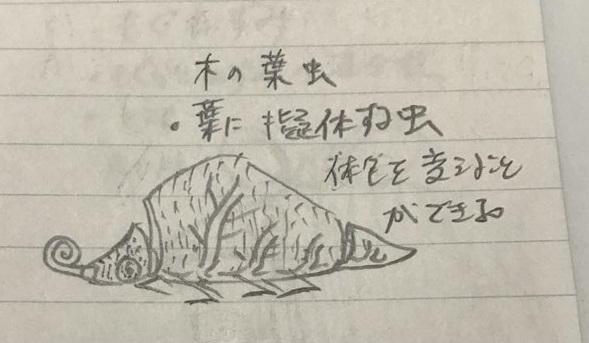 木の葉虫
・葉に擬体する虫
体色を変えること
ができる